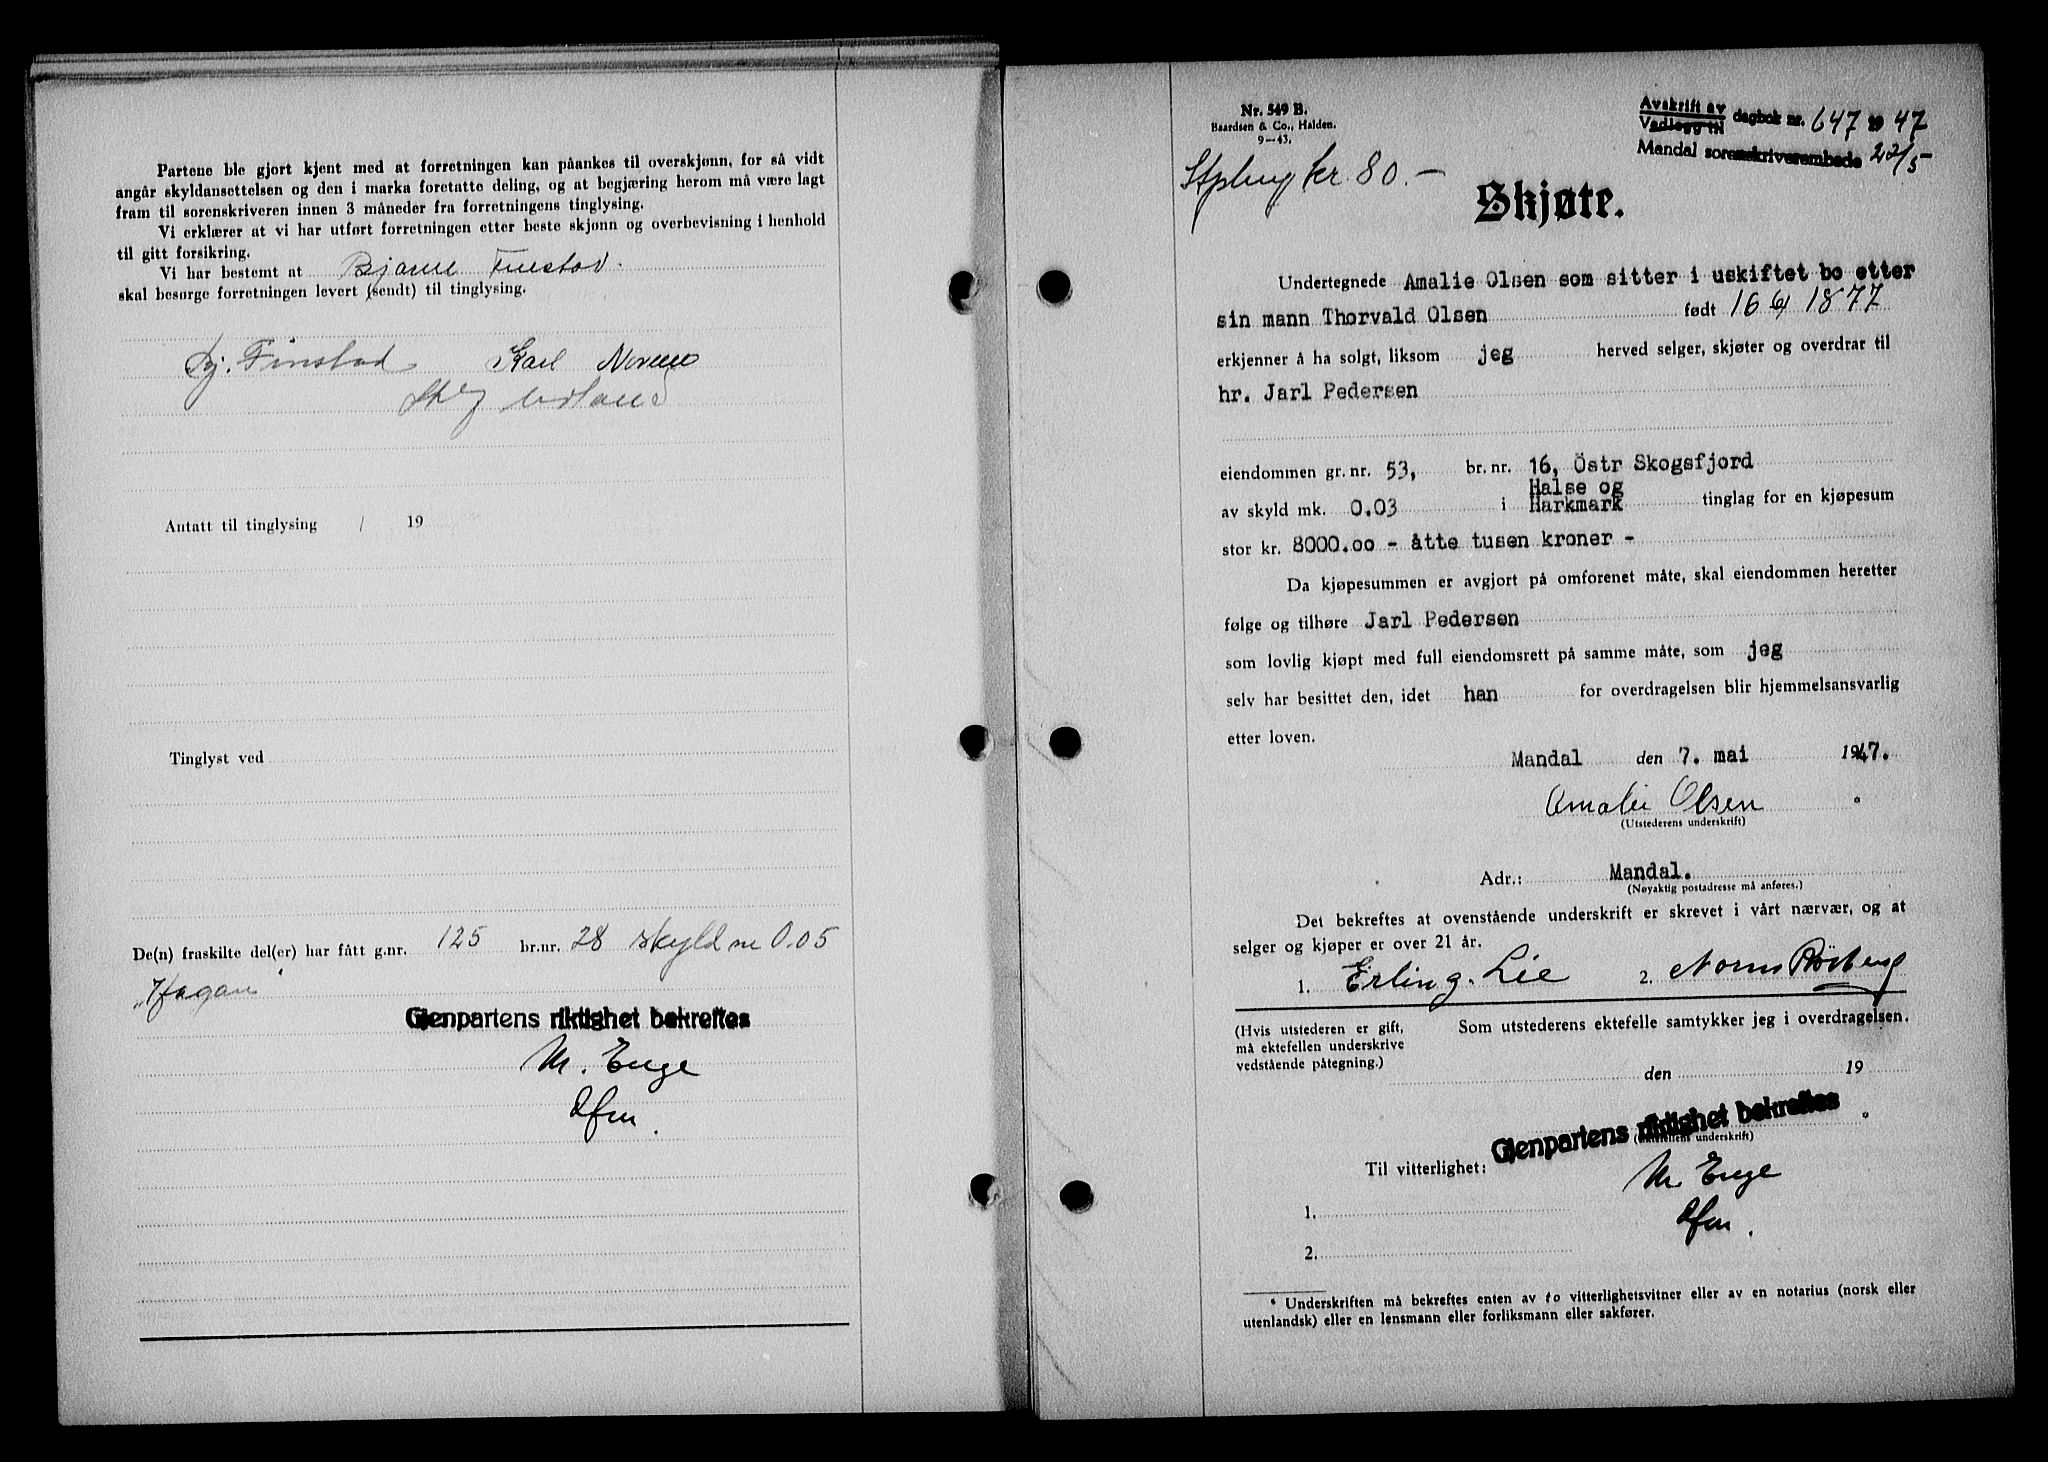 Partene ble gjort kjent med at forretningen kan påankes til overskjønn, for så vidt
angår skyldansettelsen og den i marka foretatte deling, og at begjæring herom må være lagt
fram til sorenskriveren innen 3 måneder fra forretningens tinglysing.
Vi erklærer at vi har utført forretningen etter beste skjønn og overbevisning i henhold
til gitt forsikring.
Vi har bestemt at Bjarne Finstad.
skal besørge forretningen levert (sendt) til tinglysing.
Bj. Finstad Karl
Antatt til tinglysing / 19
Tinglyst ved
De(n) fraskilte del(er) har fått g.nr. 125 br.nr. 28 skyld m 0.05
"Hagan"
Gjenpartens riktighet bekreftes
M. Enge
Nr. 549 B.
Baardsen & Co., Halden.
9—43.
Avskrift av
Vedlegg til dagbok nr. 647 19 47
Mandal sorenskriverembede 22/5
kr 80.—
Skjøte.
Undertegnede Amalie Olsen som sitter i uskiftet bo etter
sin mann Thorvald Olsen født 16/6 1877
erkjenner å ha solgt, liksom jeg herved selger, skjøter og overdrar til
hr. Jarl Pedersen
eiendommen gr. nr. 53, br. nr. 16, Östr Skogsfjord
av skyld mk. 0.03 i Halse og Harkmark tinglag for en kjøpesum
stor kr. 8000.oo - åtte tusen kroner -
Da kjøpesummen er avgjort på omforenet måte, skal eiendommen heretter
følge og tilhøre Jarl Pedersen
som lovlig kjøpt med full eiendomsrett på samme måte, som jeg
selv har besittet den, idet han for overdragelsen blir hjemmelsansvarlig
etter loven.
Mandal den 7. mai 1947.
Amalie Olsen *
(Utstederens underskrift)
Adr.: Mandal.
(Nøyaktig postadresse må anføres.)
Det bekreftes at ovenstående underskrift er skrevet i vårt nærvær, og at
selger og kjøper er over 21 år.
1. Erling Lie 2.
(Hvis utstederen er gift, Som utstederens ektefelle samtykker jeg i overdragelsen.
må ektefellen underskrive
vedstående påtegning.)
den 19
Gjenpartens riktighet bekreftes *
(ektefellens underskrift)
Til vitterlighet:
M. Enge
1.
2.
* Underskriften må bekreftes enten av to vitterlighetsvitner eller av en notarius (norsk eller
utenlandsk) eller en lensmann eller forliksmann eller sakfører.